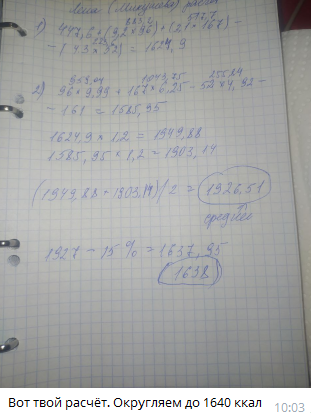 883,2 517,7
1) 447,6 + (9,2 × 96) + (3,1 × 167) –
223,6
– (4,3 × 52) = 1624,9
959,04 1043,75 255,84
2) 96 × 9,99 + 167 × 6,25 – 52 × 4,92 –
– 161 = 1585,95
1624,9 × 1,2 = 1949,88
1585,95 × 1,2 = 1903,14
(1949,88 + 1903,14)/2 = 1926,51
среднее
1927 – 15% = 1637,95
1638
Вот твой расчёт. Округляем до 1640 ккал
10:03